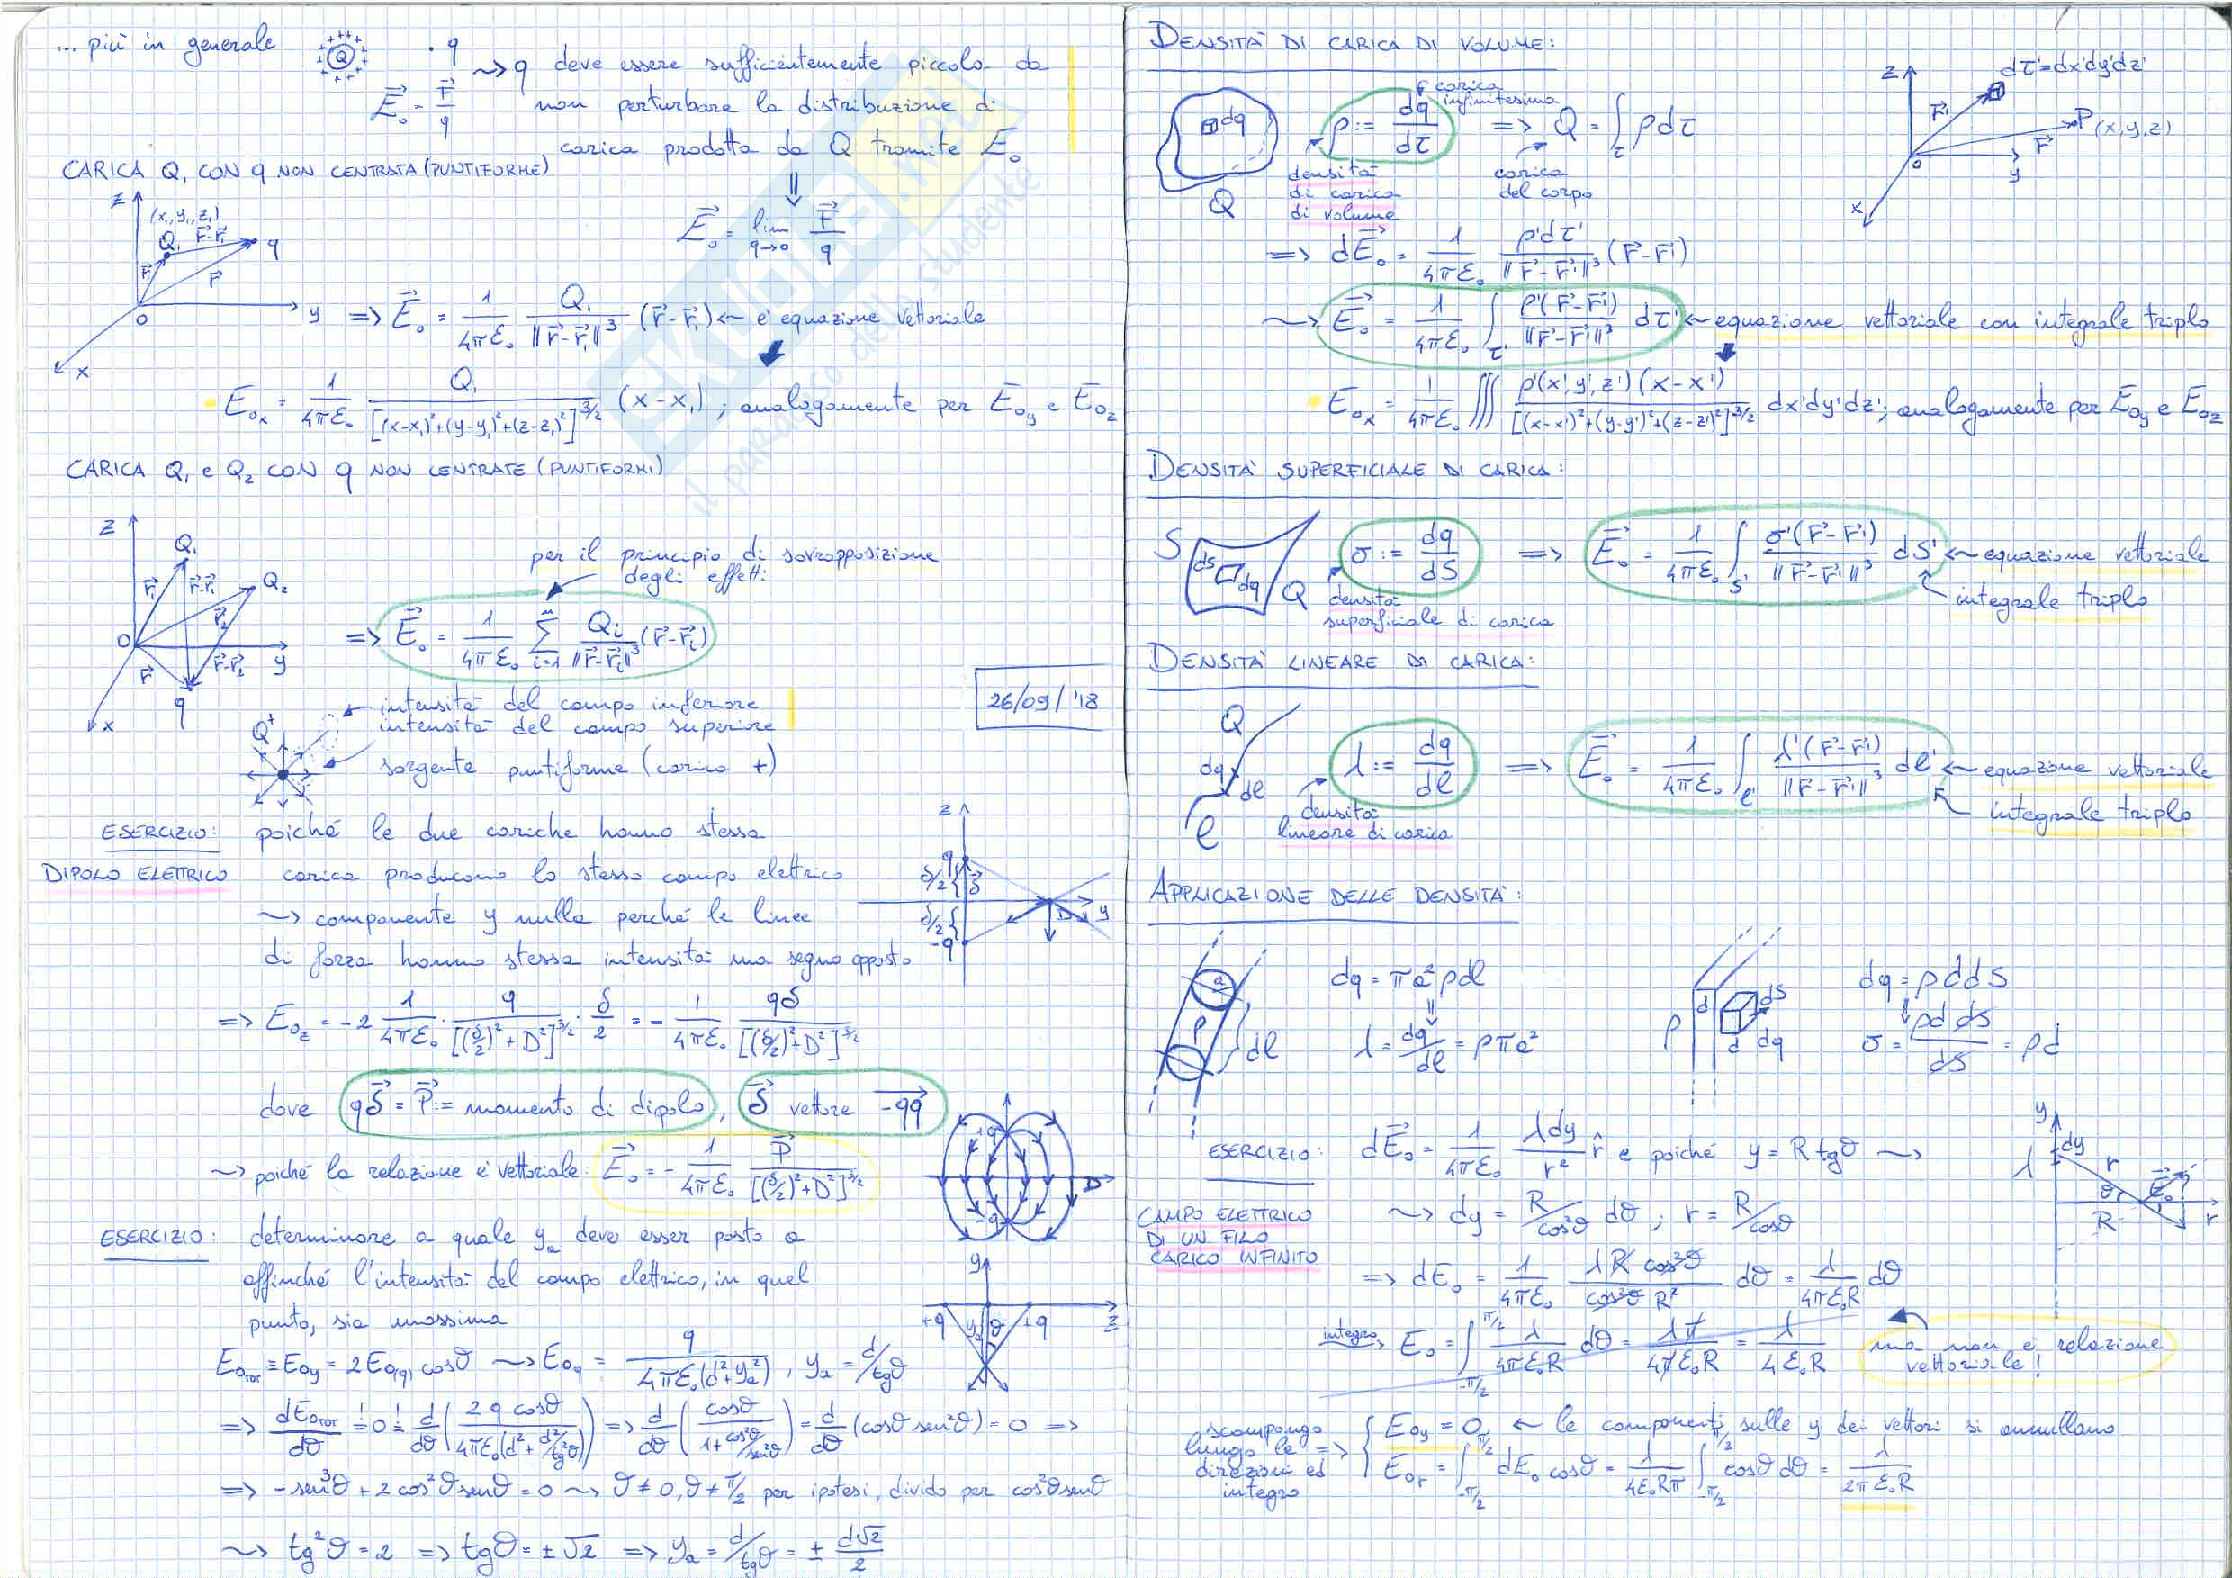 ... più in generale
Q
. q
E⃗₀ = F⃗/q
~> q deve essere sufficientemente piccolo da
non perturbare la distribuzione di
carica prodotta da Q tramite E⃗₀
⇓
E⃗₀ = lim q→0 F⃗/q
CARICA Q₁ CON q NON CENTRATA (PUNTIFORME)
z
(x₁,y₁,z₁)
Q₁ r⃗-r⃗₁ q
r⃗₁ r⃗
O y
x
=> E⃗₀ = 1/4πε₀ Q₁/||r⃗-r⃗₁||³ (r⃗-r⃗₁) <- è equazione vettoriale
E₀ₓ = 1/4πε₀ Q₁/[(x-x₁)²+(y-y₁)²+(z-z₁)²]^3/2 (x-x₁) ; analogamente per E₀y e E₀z
CARICA Q₁ e Q₂ CON q NON CENTRATE (PUNTIFORMI)
z
Q₁
r⃗₁ r⃗-r⃗₁ Q₂
r⃗₂
O r⃗ r⃗-r⃗₂ y
q
x
per il principio di sovrapposizione
degli effetti
=> E⃗₀ = 1/4πε₀ Σ i=1 n Qᵢ/||r⃗-r⃗ᵢ||³ (r⃗-r⃗ᵢ)
26/09/'18
Q⁺
intensità del campo inferiore
intensità del campo superiore
sorgente puntiforme (carica +)
ESERCIZIO: poiché le due cariche hanno stessa
DIPOLO ELETTRICO carica producono lo stesso campo elettrico
~> componente y nulla perché le linee
di forza hanno stessa intensità ma segno opposto
z
q
δ/2 δ⃗
δ/2
-q
D y
=> E₀z = -2 1/4πε₀ · q/[(δ/2)²+D²]^3/2 · δ/2 = - 1/4πε₀ qδ/[(δ/2)²+D²]^3/2
dove qδ⃗ = P⃗ := momento di dipolo, δ⃗ vettore -qq
~> poiché la relazione è vettoriale: E⃗₀ = - 1/4πε₀ P⃗/[(δ/2)²+D²]^3/2
+q
-q
D
ESERCIZIO: determinare a quale yₐ deve esser posto a
affinché l'intensità del campo elettrico, in quel
punto, sia massima
y
+q yₐ θ +q z
E₀ₜₒₜ ≡ E₀y = 2E₀(q) cosθ ~> E₀q = q/4πε₀(d²+yₐ²) , yₐ = d/tgθ
=> dE₀ₜₒₜ/dθ = 0 = d/dθ (2q cosθ/4πε₀(d²+d²/tg²θ)) => d/dθ (cosθ/1+cos²θ/sen²θ) = d/dθ (cosθ sen²θ) = 0 =>
=> -sen³θ + 2cos²θ senθ = 0 ~> θ ≠ 0, θ ≠ π/2 per ipotesi, divido per cos²θ senθ
~> tg²θ = 2 => tgθ = ±√2 => yₐ = d/tgθ = ± d√2/2
DENSITÀ DI CARICA DI VOLUME:
dq
Q
carica
infinitesima
ρ := dq/dτ => Q = ∫τ ρdτ
densità
di carica
di volume
carica
del corpo
z dτ'=dx'dy'dz'
r⃗' P(x,y,z)
r⃗
O y
x
=> dE⃗₀ = 1/4πε₀ ρ'dτ'/||r⃗-r⃗'||³ (r⃗-r⃗')
~> E⃗₀ = 1/4πε₀ ∫τ' ρ'(r⃗-r⃗')/||r⃗-r⃗'||³ dτ' <- equazione vettoriale con integrale triplo
E₀ₓ = 1/4πε₀ ∭ ρ'(x',y',z')(x-x')/[(x-x')²+(y-y')²+(z-z')²]^3/2 dx'dy'dz'; analogamente per E₀y e E₀z
DENSITÀ SUPERFICIALE DI CARICA:
S
dS dq
Q
σ := dq/dS => E⃗₀ = 1/4πε₀ ∫S' σ'(r⃗-r⃗')/||r⃗-r⃗'||³ dS' <- equazione vettoriale
densità
superficiale di carica
integrale triplo
DENSITÀ LINEARE DI CARICA:
Q
dq
dl
l
λ := dq/dl => E⃗₀ = 1/4πε₀ ∫l' λ'(r⃗-r⃗')/||r⃗-r⃗'||³ dl' <- equazione vettoriale
densità
lineare di carica
integrale triplo
APPLICAZIONE DELLE DENSITÀ:
a
ρ
dl
dq = πa²ρdl
⇓
λ = dq/dl = ρπa²
d dS
ρ
d dq
dq = ρ d dS
σ = ρd dS/dS = ρd
ESERCIZIO: dE⃗₀ = 1/4πε₀ λdy/r² r̂ e poiché y = R tgθ ~>
CAMPO ELETTRICO
DI UN FILO
CARICO INFINITO
~> dy = R/cos²θ dθ ; r = R/cosθ
y
dy
λ r
θ E⃗₀
R r
=> dE₀ = 1/4πε₀ λR cos²θ/cos²θ R² dθ = λ/4πε₀R dθ
integro
-> E₀ = ∫-π/2 π/2 λ/4πε₀R dθ = λπ/4πε₀R = λ/4ε₀R
ma non è relazione
vettoriale!
scompongo
lungo le
direzioni ed
integro
=> { E₀y = 0 <- le componenti sulle y dei vettori si annullano
E₀r = ∫-π/2 π/2 dE₀ cosθ = λ/4ε₀Rπ ∫-π/2 π/2 cosθ dθ = λ/2πε₀R
il paradiso dello studente